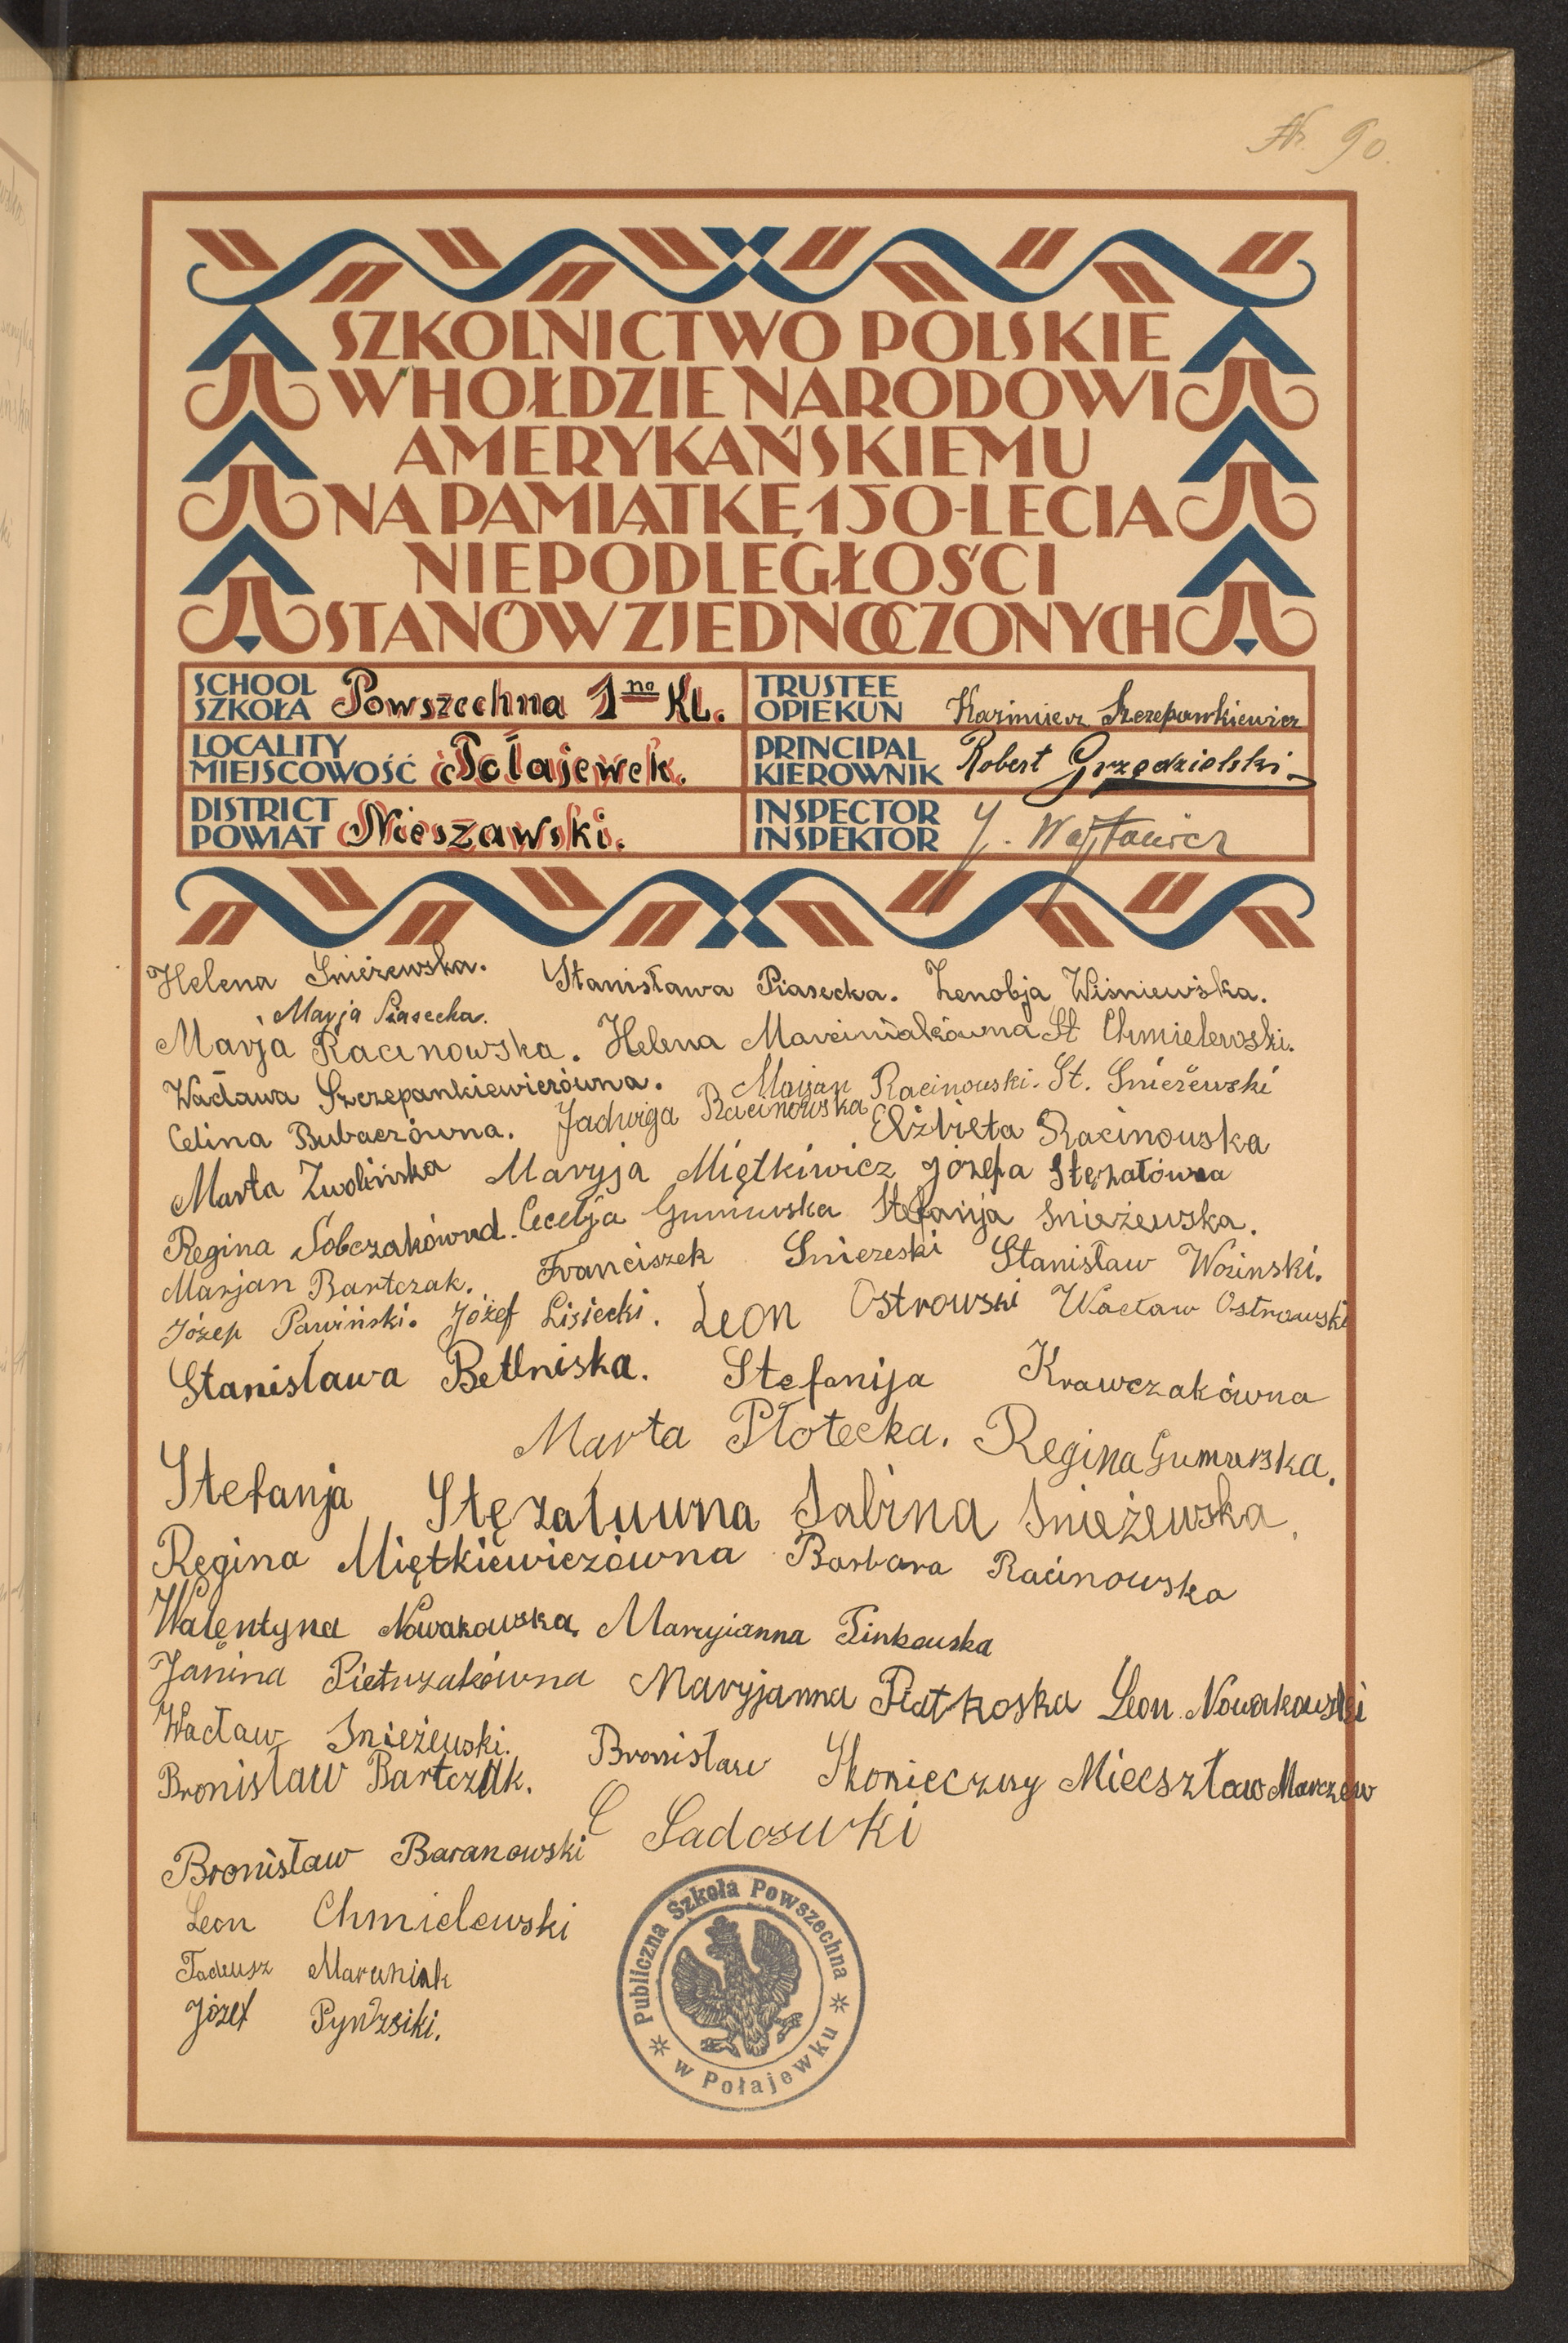 90.
SZKOLNICTWO POLSKIE
W HOŁDZIE NARODOWI
AMERYKAŃSKIEMU
NA PAMIĄTKĘ 150-LECIA
NIEPODLEGŁOŚCI
STANÓW ZJEDNOCZONYCH
SCHOOL
SZKOŁA Powszechna 1no KL.
TRUSTEE
OPIEKUN Kazimierz Szczepankiewicz
LOCALITY
MIEJSCOWOŚĆ Połajewek.
PRINCIPAL
KIEROWNIK Robert Grzędzielski
DISTRICT
POWIAT Nieszawski.
INSPECTOR
INSPEKTOR J. Wojtowicz
Helena Śnieżewska. Stanisława Piasecka. Zenobja Wiśniewska.
Maryja Piasecka.
Marja Racinowska. Helena Marciniakówna St Chmielewski.
Wacława Szczepankiewiczówna. Marjan Racinowski. St. Śnieżewski
Celina Bubaczówna. Jadwiga Racinowska Elżbieta Racinouska
Marta Zwolińska Maryja Miętkiwicz Józefa Stęzałówna
Regina Sobczakówna. Cecelja Gumuwska Stefanja Snieżewska.
Marjan Bartczak. Franciszek Sniezeski Stanisław Wozinski.
Józep Pawiński. Józef Lisiecki. Leon Ostrowski Wacław Ostrowski
Stanisława Betlniska. Stefanija Krawczakówna
Marta Płotecka. Regina Gumurska.
Stefanja Stęzałuwna Sabina Snieżewska.
Regina Miętkiewiczówna Barbara Racinowska
Walentyna Nowakowska, Maryianna Pinkouska
Janina Pietrzakówna Maryjanna Piatkoska Leon Nowakowski
Wacław Snieżewski.
Bronisław Bartczak. Bronisław Skonieczny Miecszław Marczew
C Sadosuki
Bronisław Baranowski
Leon Chmielewski
Tadeusz Marciniak
Józef Pyndzsiki.
Publiczna Szkoła Powszechna
w Połajewku